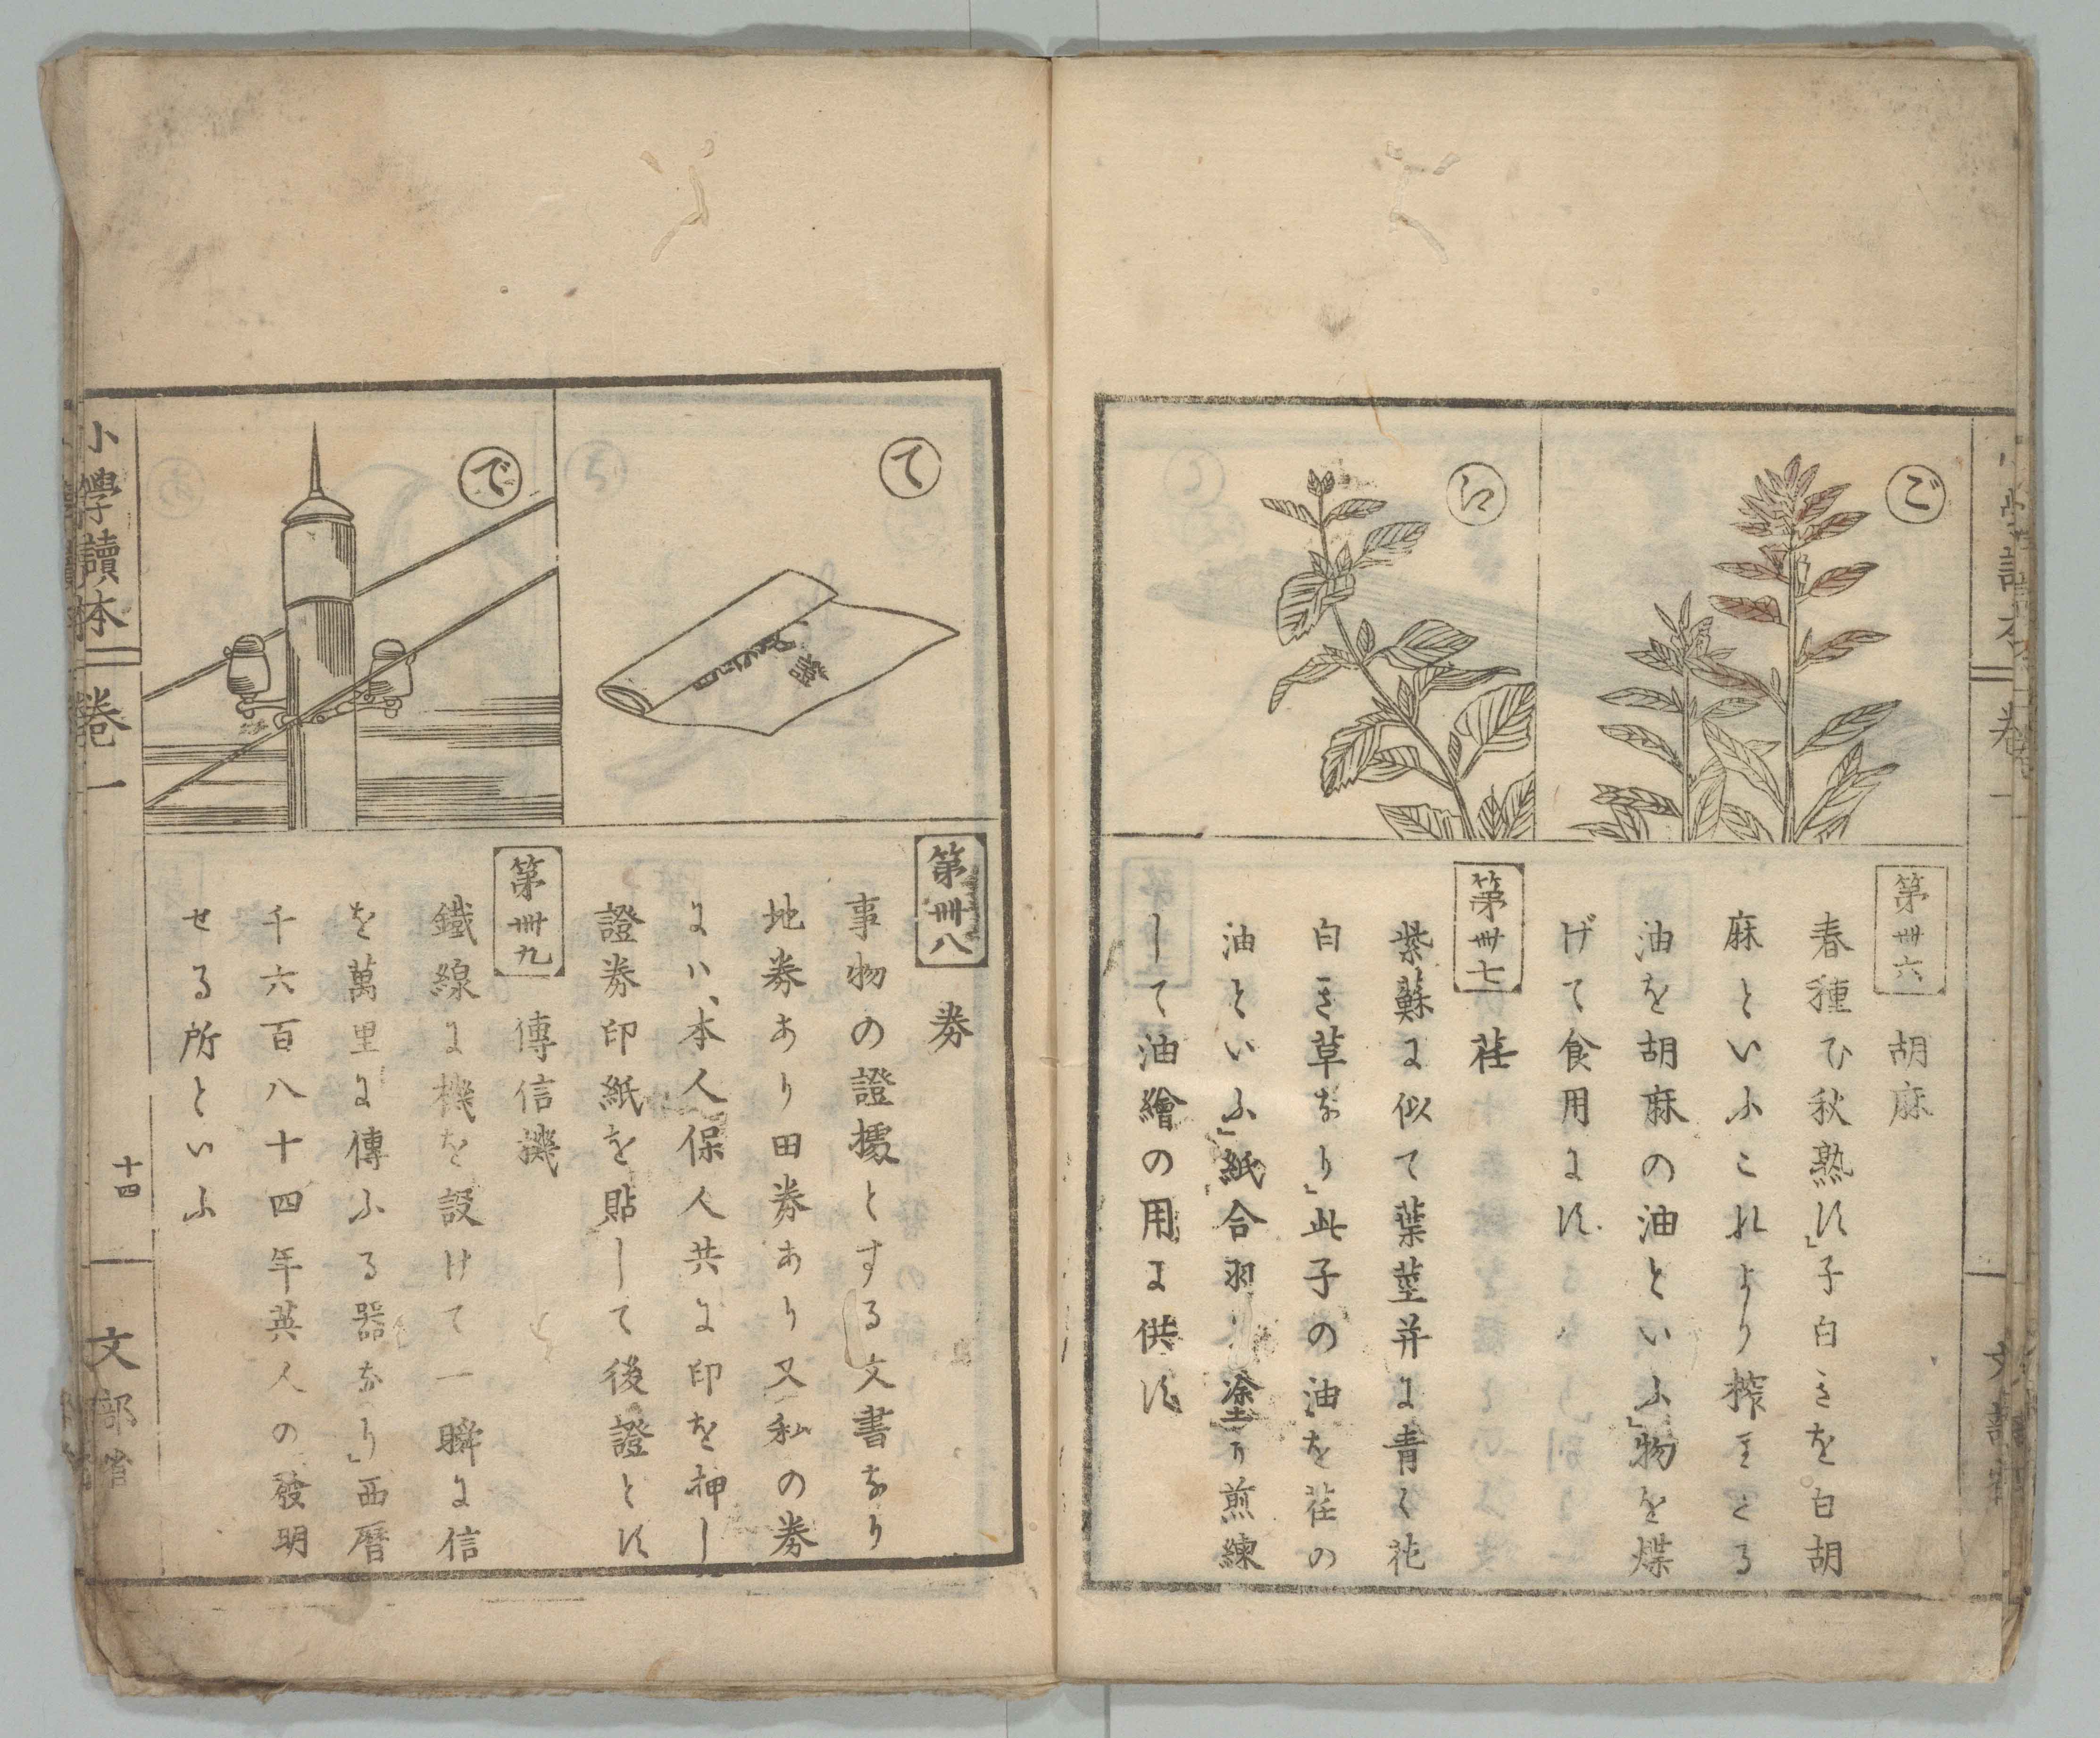 ご
第卌六 胡麻
春種ひ秋熟す」子白きを白胡
麻といふこれより搾きとる
油を胡麻の油といふ」物を煠
げて食用にす
江
第卌七 荏
紫蘇に似て葉莖并に青く花
白き草なり」此子の油を荏の
油といふ」紙合羽に塗り煎練
して油繪の用に供す
て
第卌八 券
事物の證據とする文書なり
地券あり田券あり又私の券
にハ、本人保人共に印を押し
證券印紙を貼して後證とす
で
第卌九 傳信機
鐵線に機を設けて一瞬に信
を萬里に傳ふる器なり」西曆
千六百八十四年英人の發明
せる所といふ
小學讀本 卷一
十四
文部省